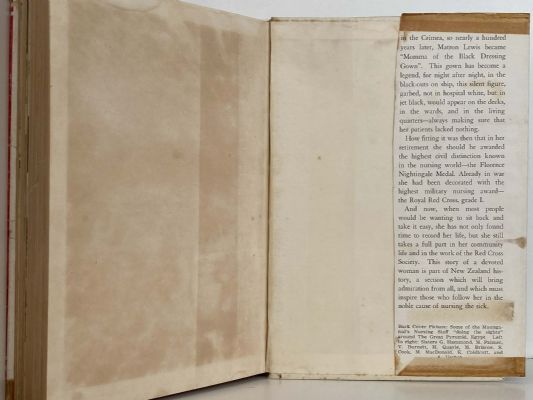 in the Crimea, so nearly a hundred
years later, Matron Lewis became
"Momma of the Black Dressing
Gown". This gown has become a
legend, for night after night, in the
black-outs on ship, this silent figure,
garbed, not in hospital white, but in
jet black, would appear on the decks,
in the wards, and in the living
quarters—always making sure that
her patients lacked nothing.
How fitting it was then that in her
retirement she should be awarded
the highest civil distinction known
in the nursing world—the Florence
Nightingale Medal. Already in war
she had been decorated with the
highest military nursing award—
the Royal Red Cross, grade I.
And now, when most people
would be wanting to sit back and
take it easy, she has not only found
time to record her life, but she still
takes a full part in her community
life and in the work of the Red Cross
Society. This story of a devoted
woman is part of New Zealand his-
tory, a section which will bring
admiration from all, and which must
inspire those who follow her in the
noble cause of nursing the sick.
Back Cover Picture: Some of the Maunga-
nui's Nursing Staff "doing the sights"
around The Great Pyramid, Egypt. Left
to right: Sisters G. Hammond, M. Palmer,
V. Burnett, M. Quayle, M. Briscoe, S.
Cook, M. MacDonald, E. Coldicutt, and